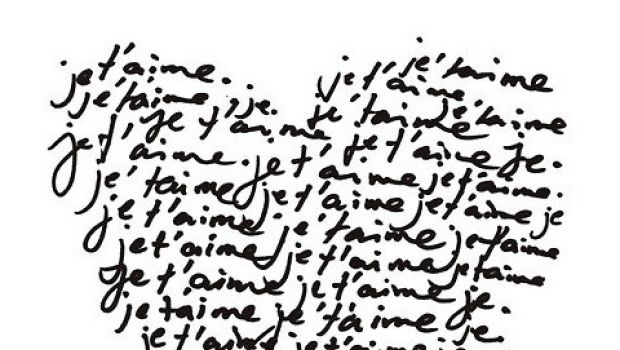 je t'aime. je t'aime
je t'aime, je. je t'aime
je t'aime je t'aime je t'aime
je t'aime. je t'aime je.
je t'aime je t'aime je t'aime.
je t'aime je t'aime je t'aime je
je t'aime je t'aime je t'aime
je t'aime je t'aime je t'aime
je taime je t'aime je.
je t'aime je t'aime je